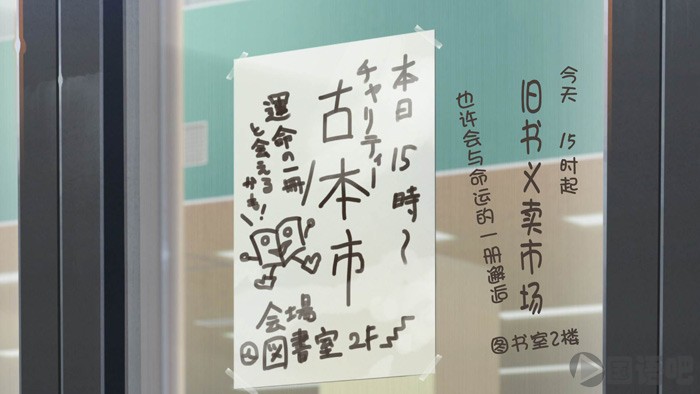 本日15時〜
チャリティー
古本市
運命の一冊
と会える
かも!
会場
図書室2F
今天 15时起
旧书义卖市场
也许会与命运的一册邂逅
图书室2楼
国语吧